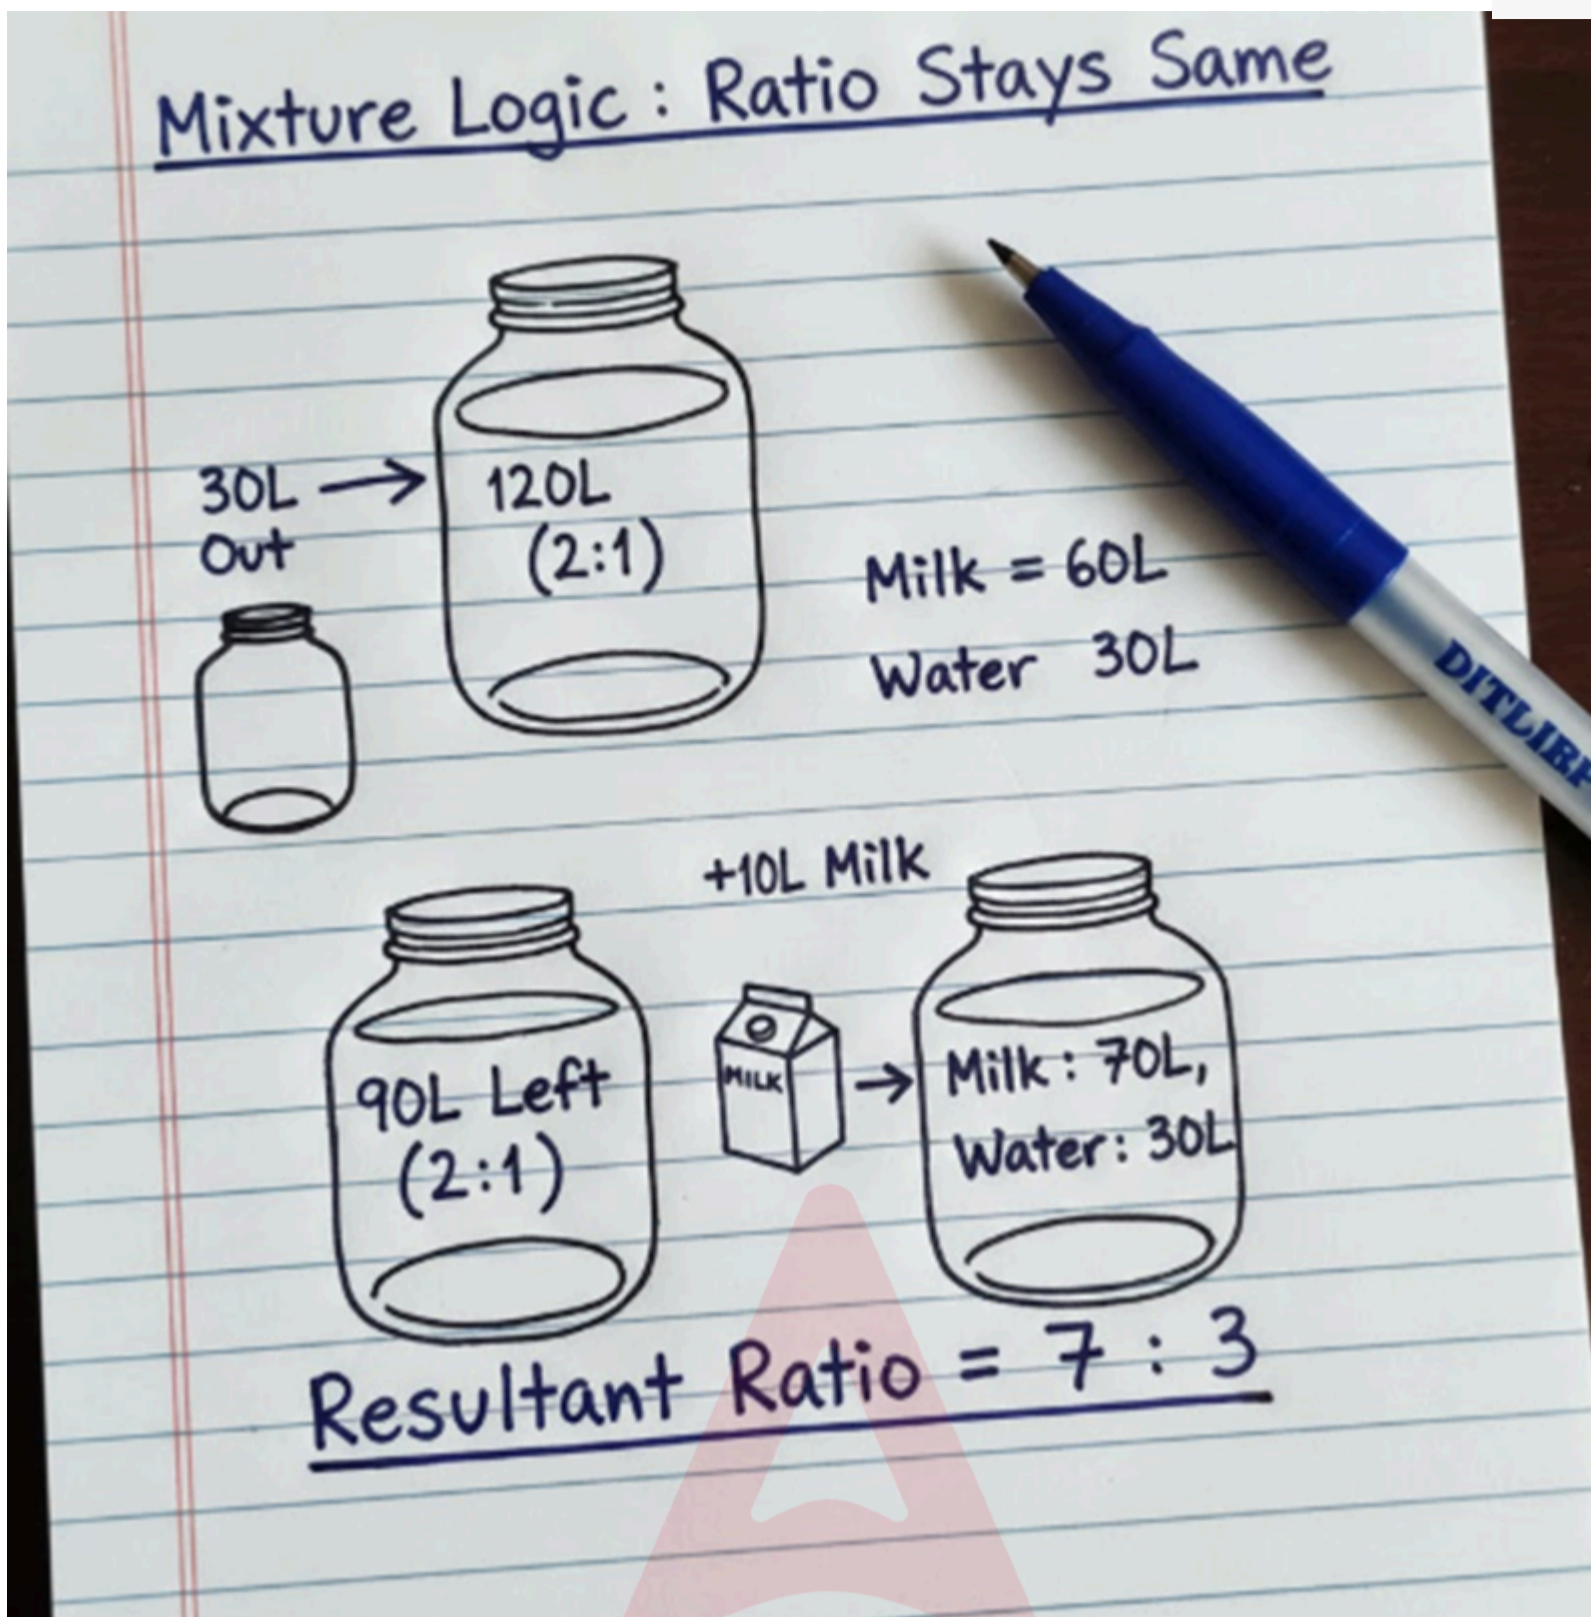 Mixture Logic : Ratio Stays Same
30L
Out
120L
(2:1)
Milk = 60L
Water 30L
DITLIRP
+10L Milk
90L Left
(2:1)
MILK
Milk : 70L,
Water : 30L
Resultant Ratio = 7 : 3